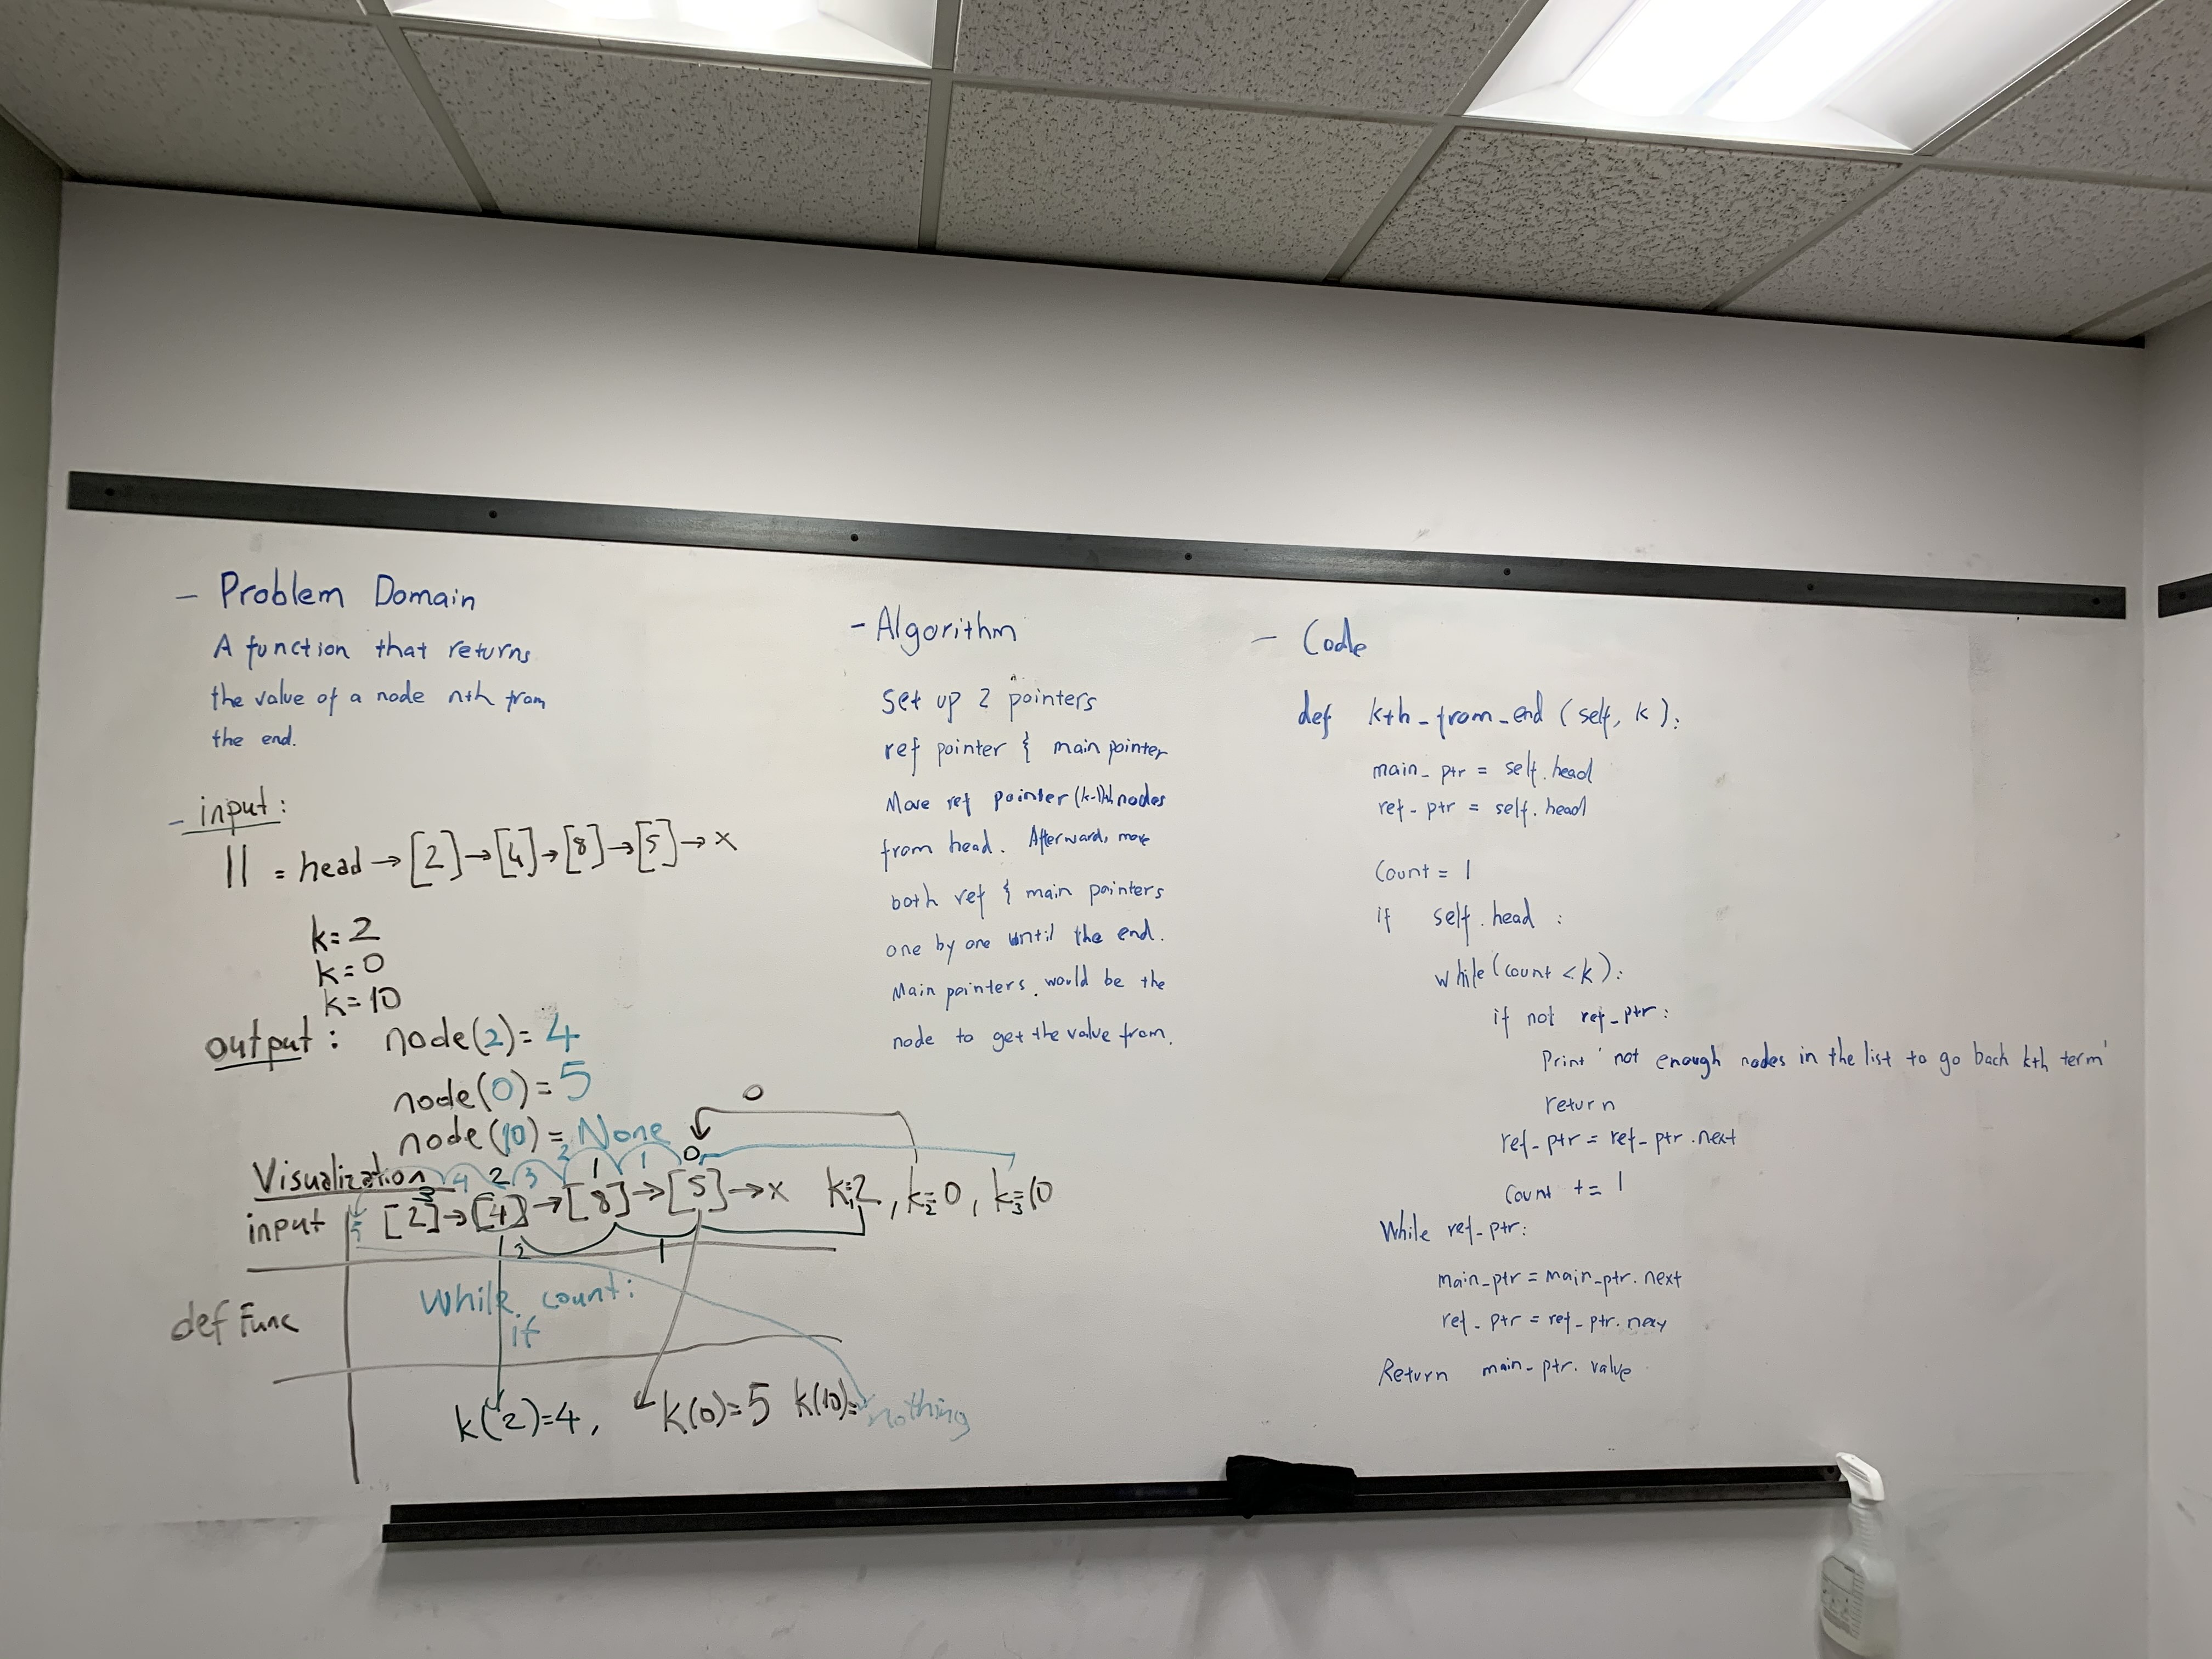 - Problem Domain
A function that returns
the value of a node nth from
the end.
- input:
ll = head → [2] → [4] → [8] → [5] → x
k=2
k=0
k=10
output: node(2)=4
node(0)=5
node(10)=None
Visualization
0
4 2 3 2 1 1 0
input [2]→[4]→[8]→[5]→x k1=2, k2=0, k3=10
2 1
def Func
While count:
if
k(2)=4, k(0)=5 k(10)=nothing
- Algorithm
set up 2 pointers
ref pointer & main pointer
Move ref pointer (k-1)th nodes
from head. Afterwards, move
both ref & main pointers
one by one until the end.
Main pointers. would be the
node to get the value from.
- Code
def kth_from_end (self, k):
main_ptr = self.head
ref_ptr = self.head
Count = 1
if self.head:
while(count < k):
if not ref_ptr:
Print 'not enough nodes in the list to go back kth term'
return
ref_ptr = ref_ptr.next
Count += 1
While ref_ptr:
main_ptr = main_ptr.next
ref_ptr = ref_ptr.nexy
Return main_ptr.value